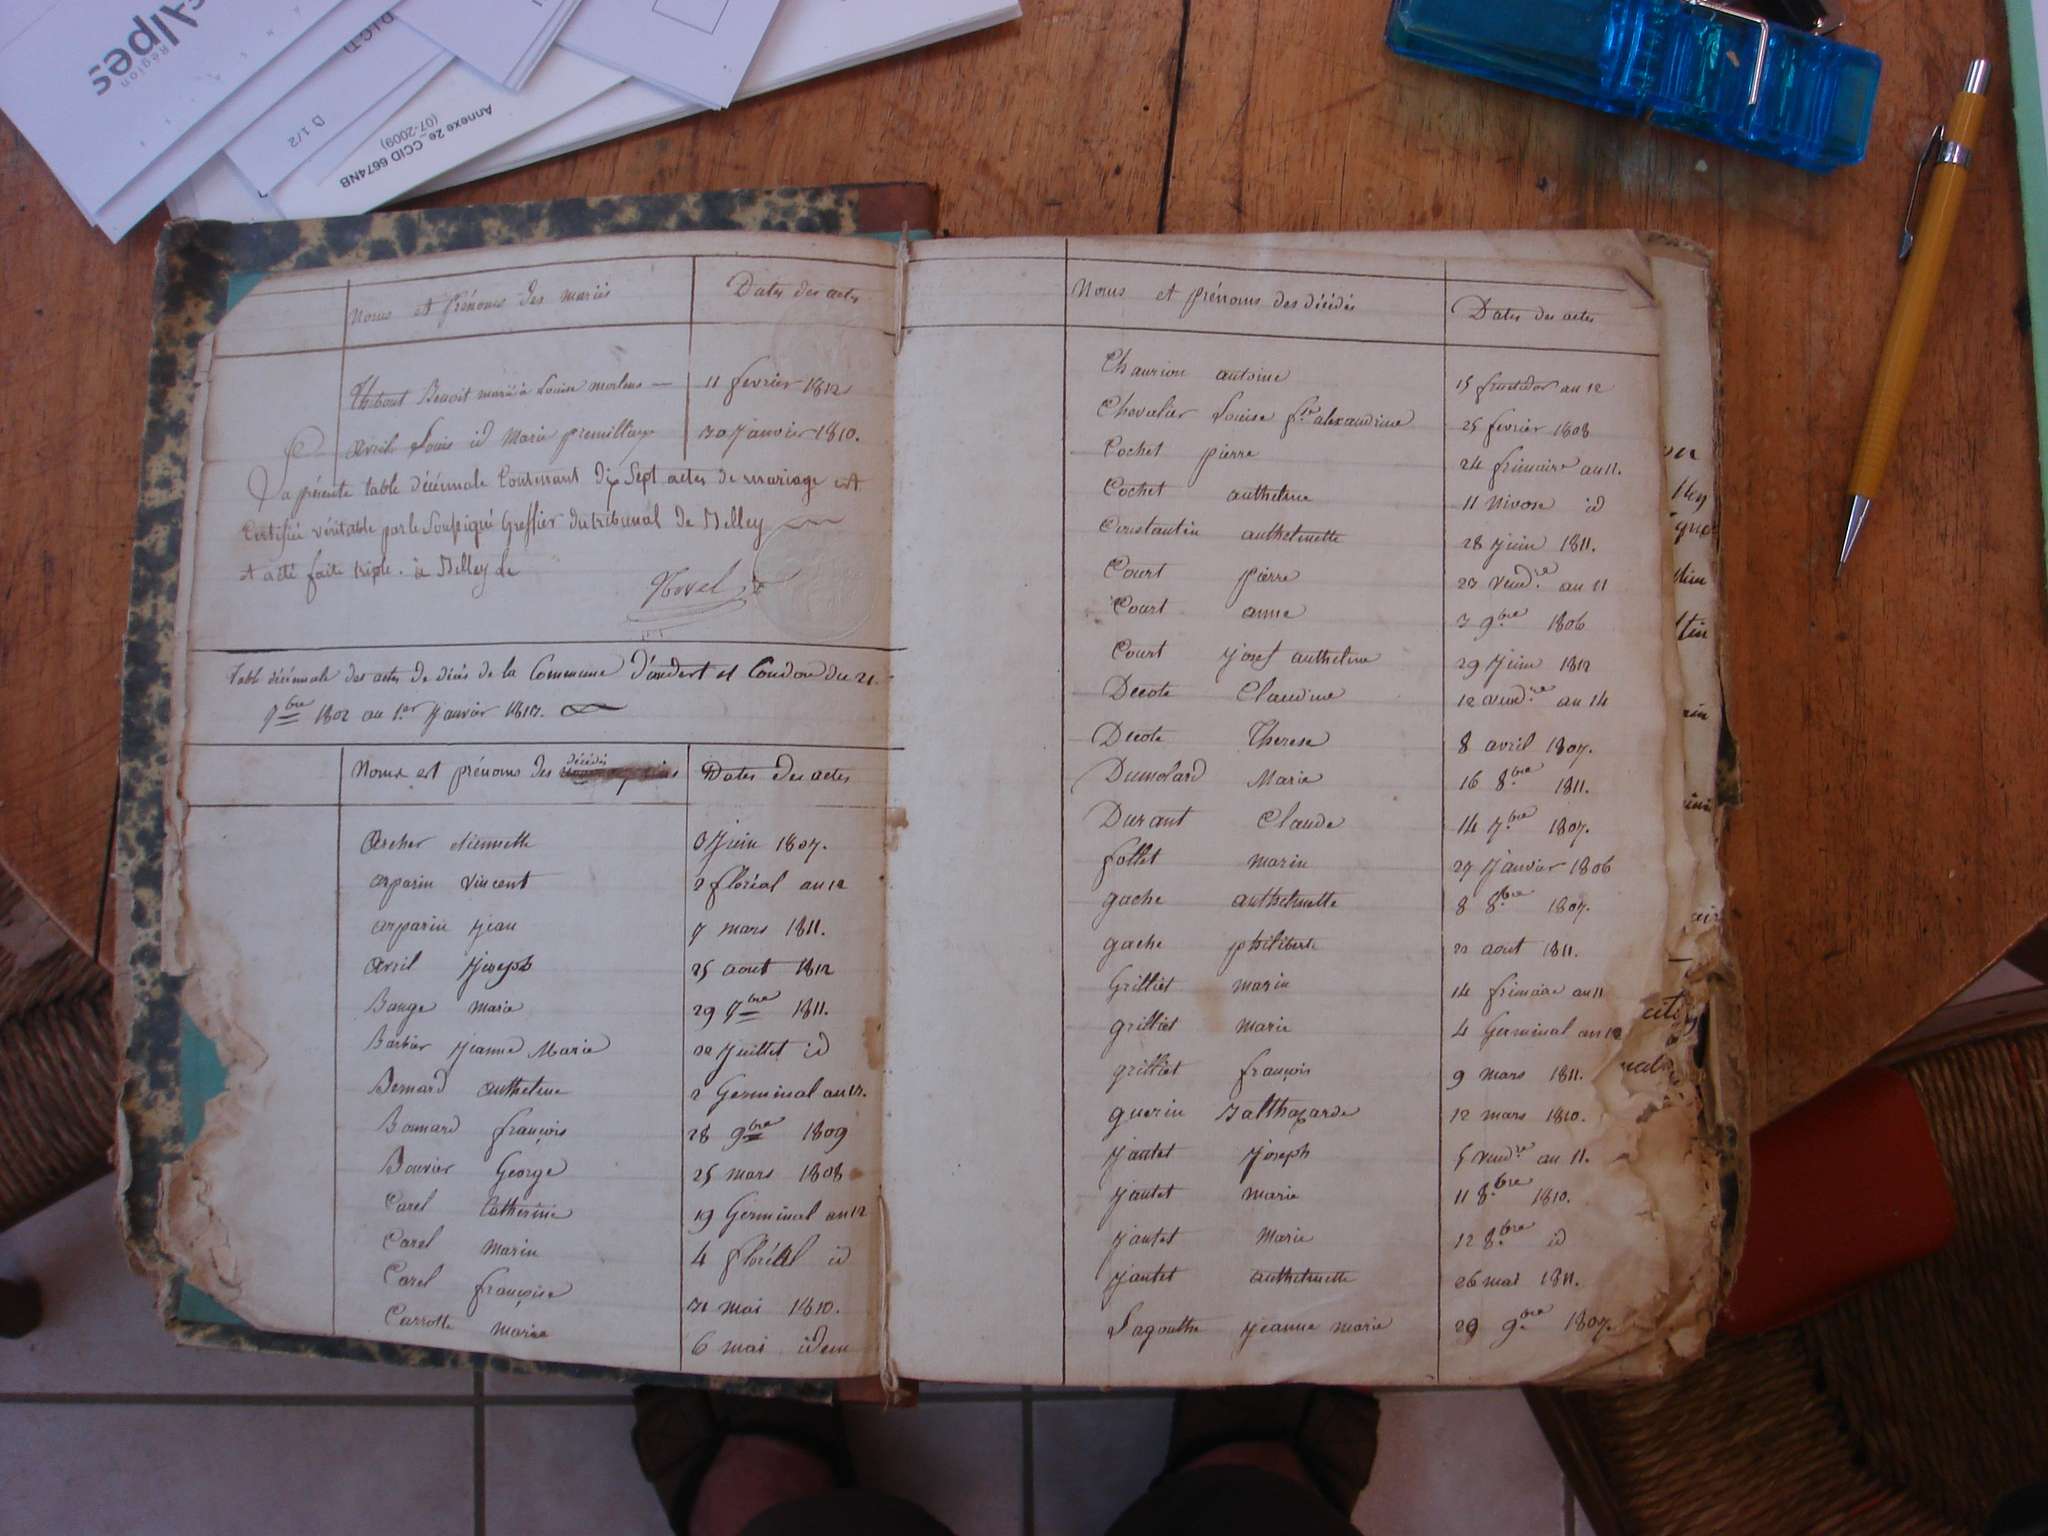 Alpes
Région
D 1/2
Annexe 2e - CCID 6674NB
(07-2009)
Noms et prénoms des mariés Dates des actes
Thibout Benoit marié à Louise morlens 11 fevrier 1812
avril Louis id Marie 30 Janvier 1810.
La présente table décennale Contenant dix Sept actes de mariage et
Certifiée véritable par le Soussigné Greffier du tribunal de Belley
et a été faite triple. à Belley le
Table décennale des actes de décès de la Commune d'andert et Condon du 21
7bre 1802 au 1er Janvier 1813.
Noms et prénoms des décédés Dates des actes
archer etiennette 3 Juin 1807.
arparin vincent 2 floréal an 12
arparin Jean 7 mars 1811.
avril Joseph 25 aout 1812
Bauge marie 29 7bre 1811.
Barbier Jeanne Marie 22 Juillet id
Bernard anthelme 2 Germinal an 13.
Bonnard françois 28 9bre 1809
Bouvier George 25 mars 1808
Carel Catherine 19 Germinal an 12
Carel marin 4 floréal id
Carel françoise 31 mai 1810.
Carrotte marie 6 mai idem
Noms et prénoms des décédés Dates des actes
Chaurion antoine 15 fructidor an 12
Chevalier Louise fse alexandrine 25 fevrier 1808
Cochet pierre 24 frimaire an 11.
Cochet anthelme 11 Nivose id
Constantin anthelmette 28 Juin 1811.
Court pierre 23 vendre an 11
Court anne 3 9bre 1806
Court Josef anthelme 29 Juin 1812
Decote Claudine 12 vendre an 14
Decote Therese 8 avril 1807.
Dumolard Marie 16 8bre 1811.
Durant Claude 14 7bre 1807.
follet marin 27 Janvier 1806
gache anthelmette 8 8bre 1807.
gache philiberte 22 aout 1811.
Grilliet marin 14 frimaire an 11
grilliet marie 4 Germinal an 12
grilliet françois 9 mars 1811.
guerin Balthazarde 12 mars 1810.
Jantet Joseph 5 vendre an 11.
Jantet marie 11 8bre 1810.
Jantet Marie 12 8bre id
Jantet anthelmette 26 mai 1811.
Lagouthe Jeanne marie 29 9bre 1807.